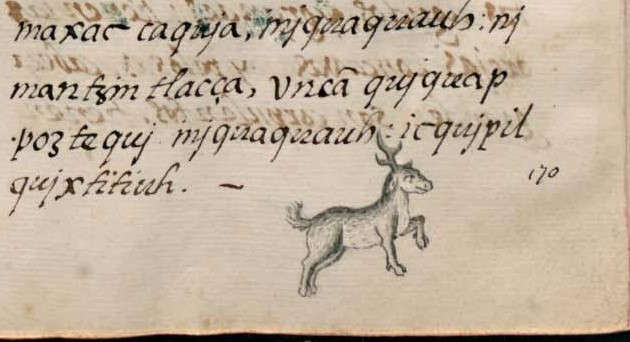 maxac caquja, mjquaquauh: nj
mantzin tlacça, vncã qujquap
poztequj mjquaquauh: ic qujpil
qujxtitiuh. –
170